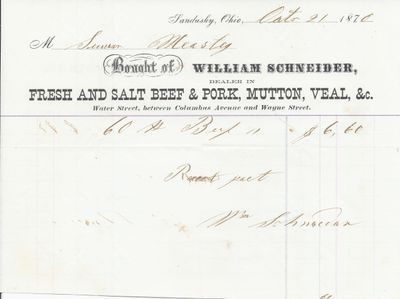 Sandusky, Ohio, Octo 21 1870
M
Bought of WILLIAM SCHNEIDER,
DEALER IN
FRESH AND SALT BEEF & PORK, MUTTON, VEAL, &c.
Water Street, between Columbus Avenue and Wayne Street.
60 # Beef 11 $6,60
Wm Schneider